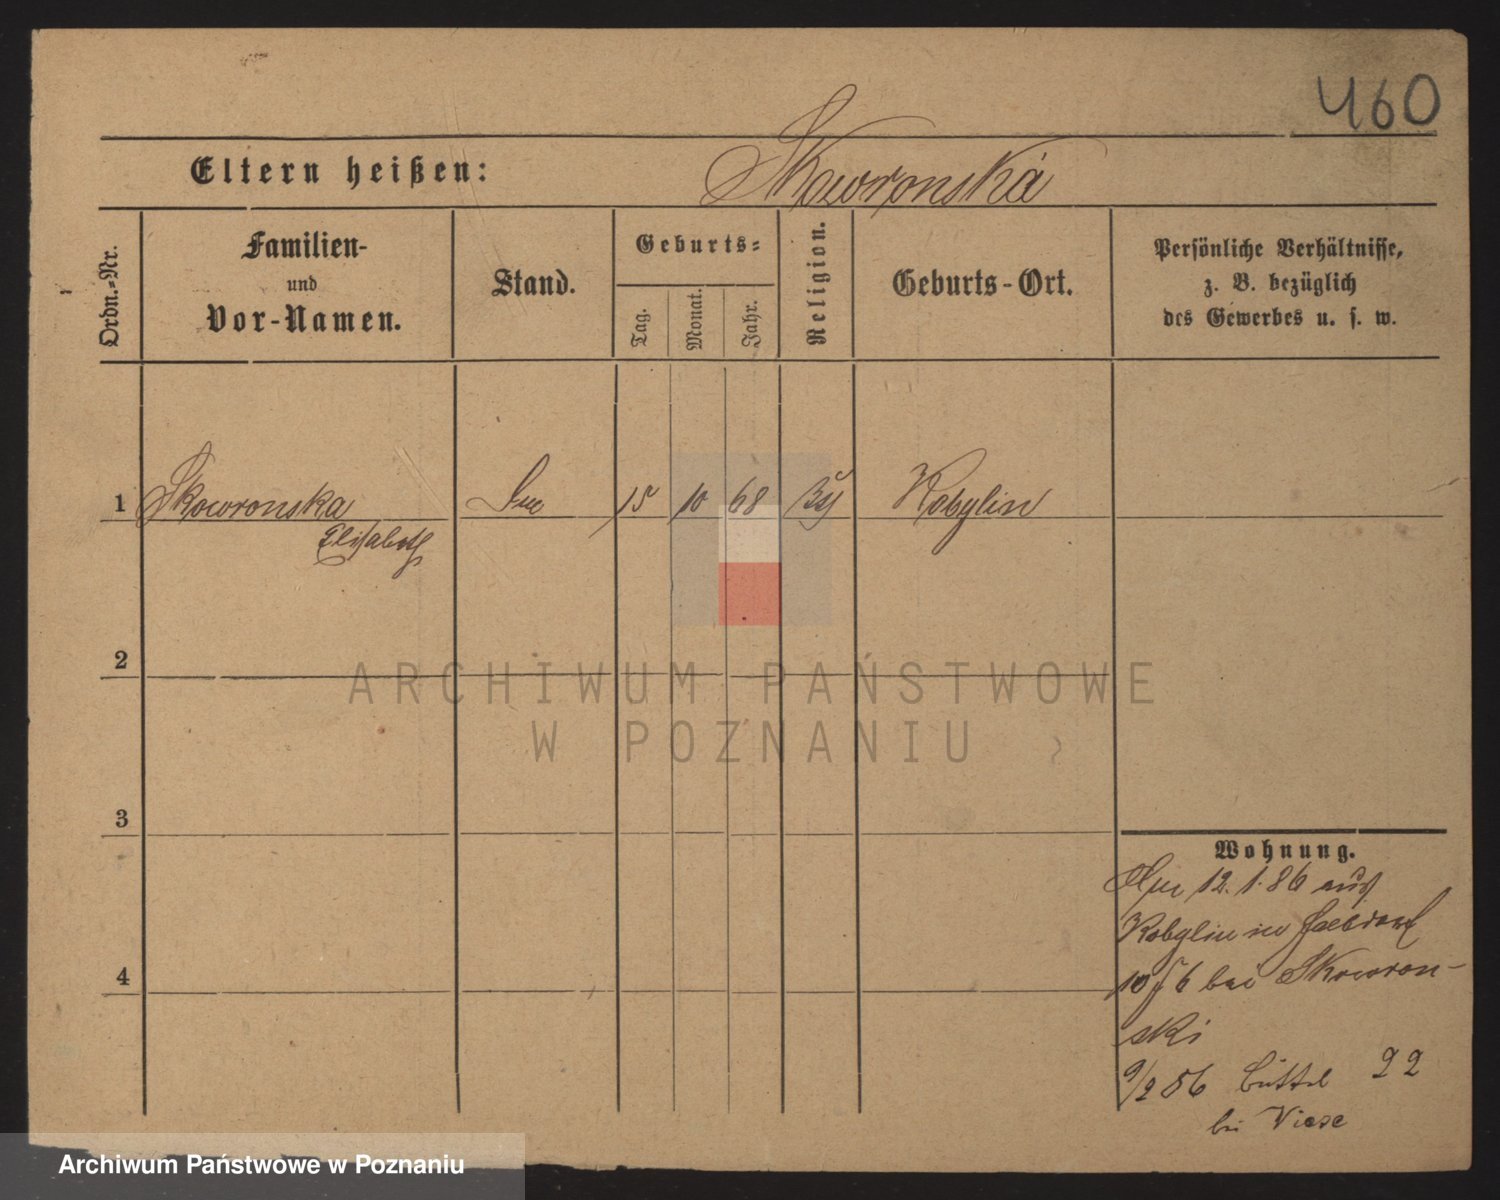 460
Eltern heißen: Skowronska
Ordn.-Nr.
Familien-
und
Vor-Namen.
Stand.
Geburts-
Tag.
Monat.
Jahr.
Religion.
Geburts-Ort.
Persönliche Verhältnisse,
z. B. bezüglich
des Gewerbes u. s. w.
1 Skowronska 15 10 68 Kobylin
Elisabeth
2
3
4
ARCHIWUM PAŃSTWOWE
W POZNANIU
Wohnung.
12.1.86 aus
Kobylin in
bei Skowron-
ski
9/2 86 Büttel 22
bei Viese
Archiwum Państwowe w Poznaniu